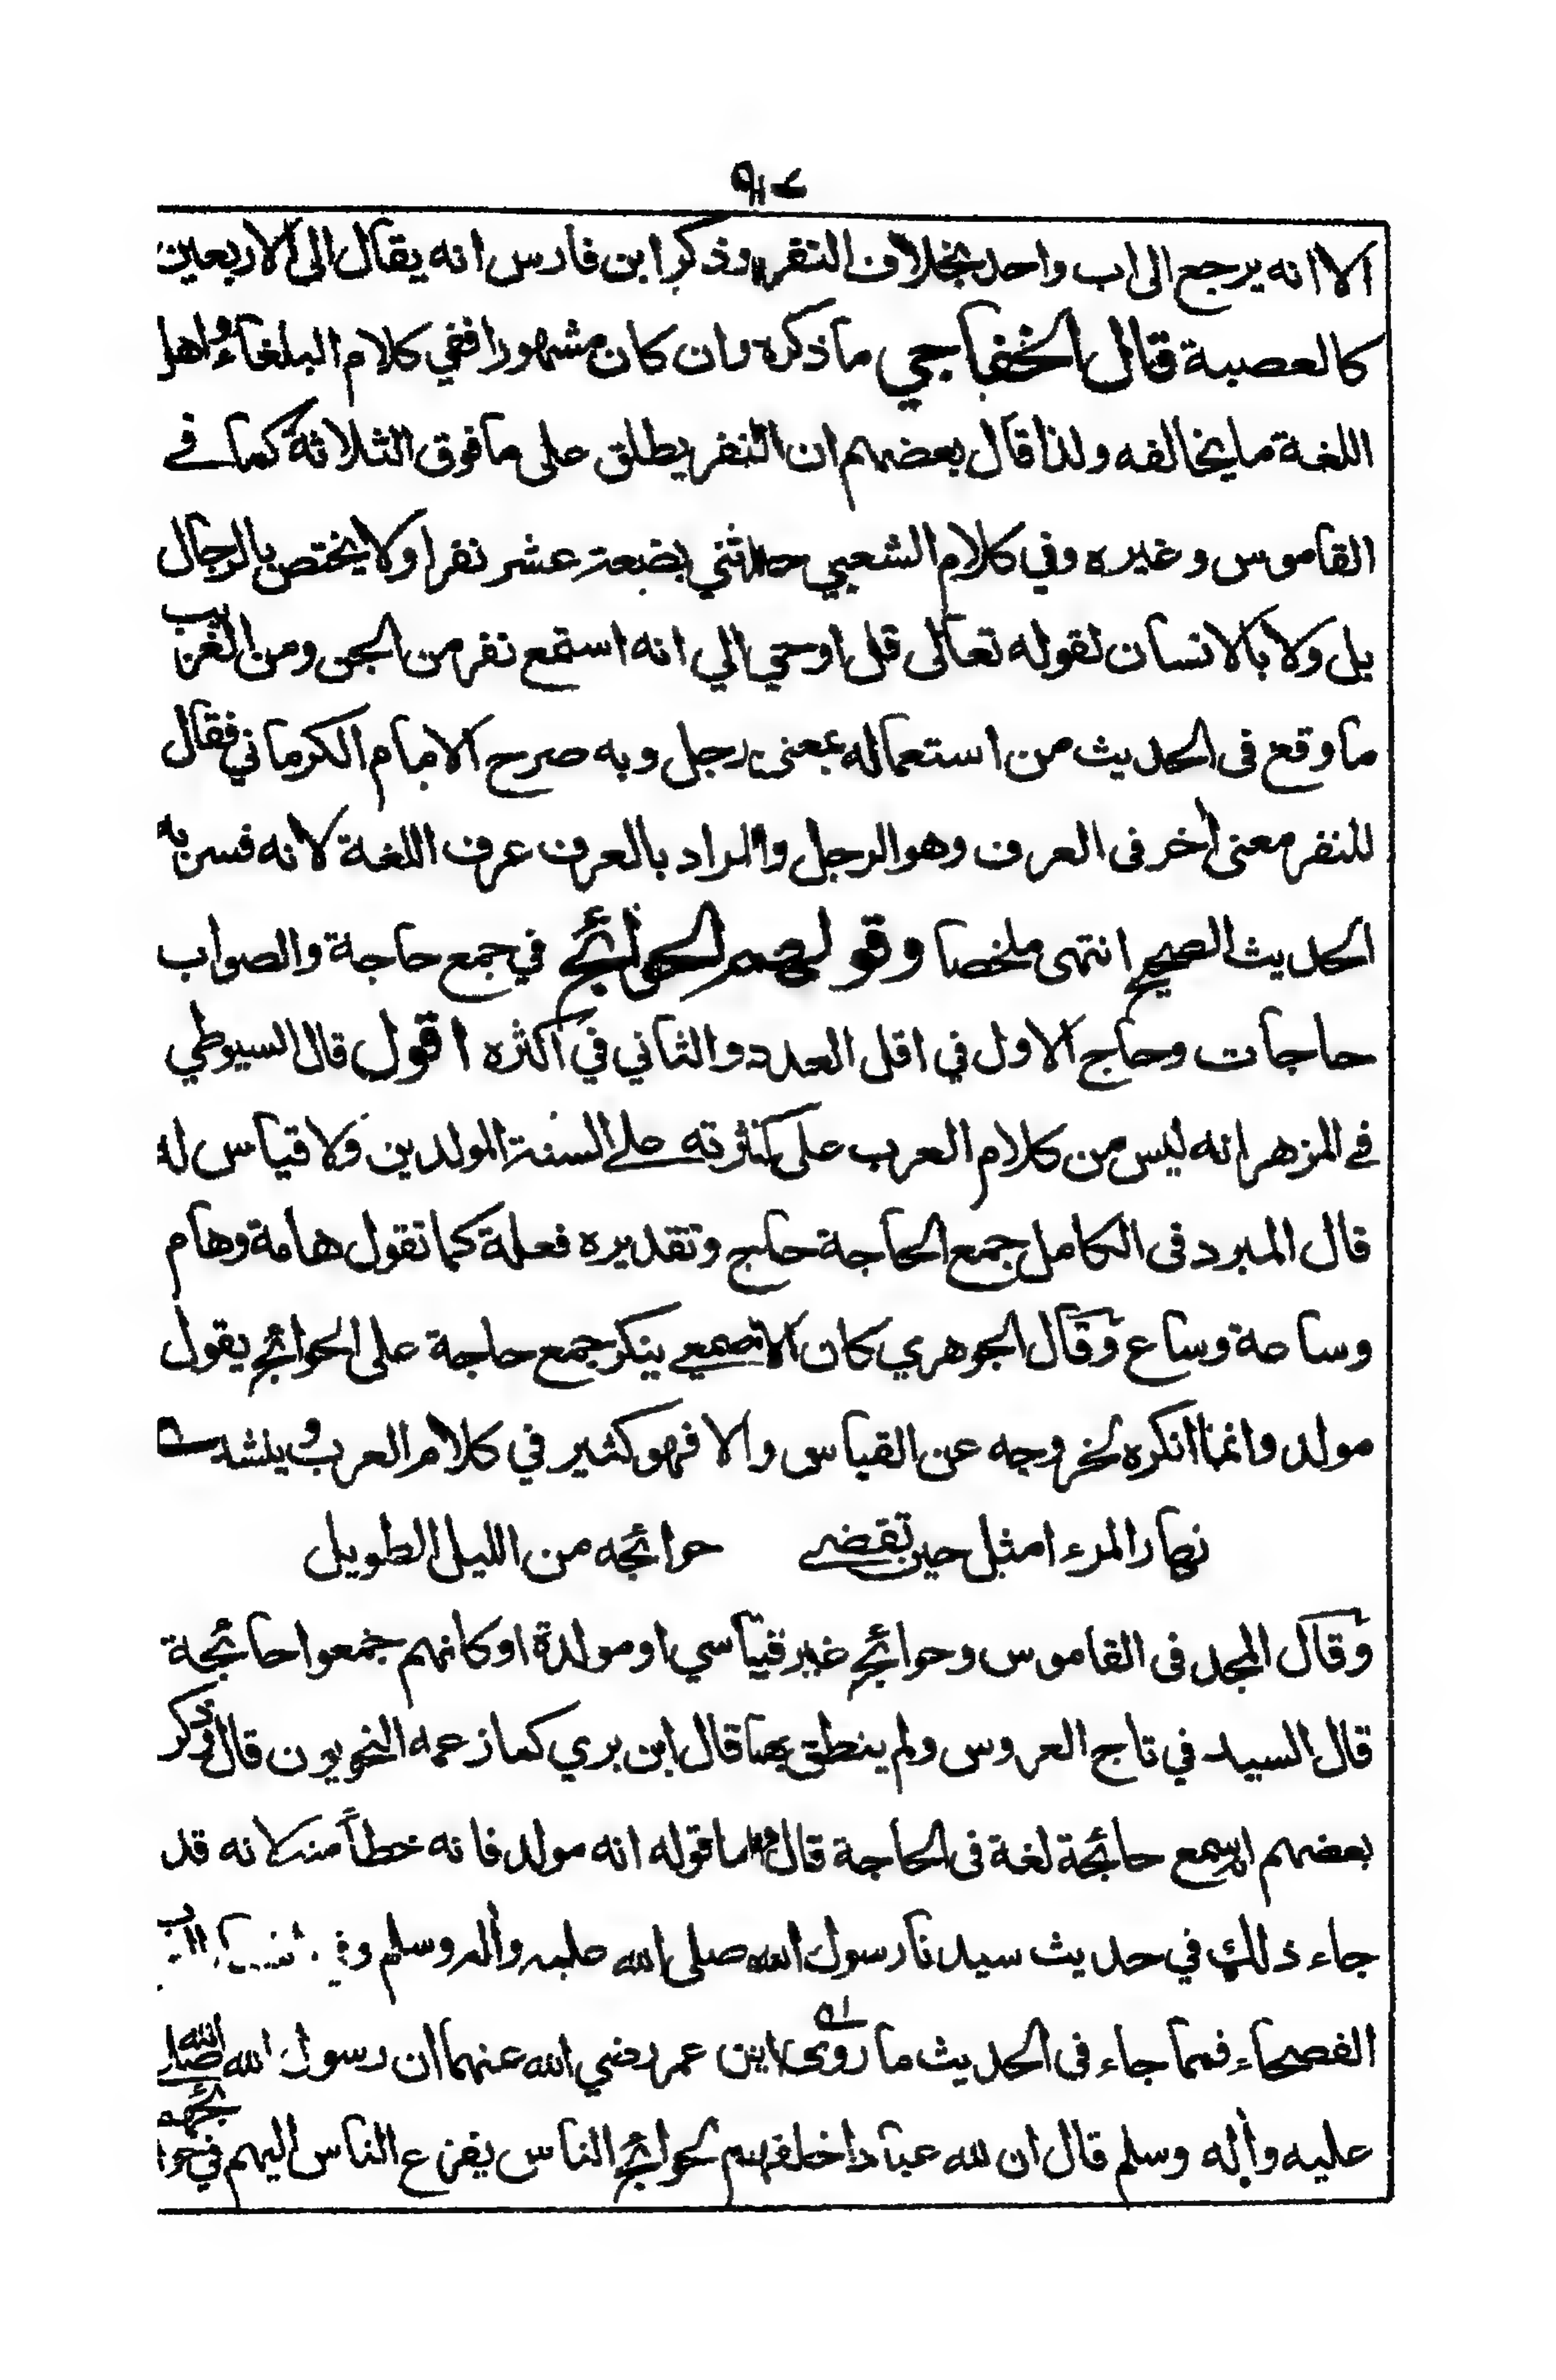 الا انه يرجع الى اب واحد بخلاف النفر وذكر ابن فارس انه يقال الى الاربعين
كالعصبة قال الخفاجي ما ذكره وان كان مشهورا ففي كلام البلغاء واهل
اللغة ما يخالفه ولذا قال بعضهم ان النفر يطلق على ما فوق الثلاثة كما في
القاموس وغيره وفي كلام الشعبي حدثني بضعة عشر نفرا ولا يختص بالرجال
بل ولا بالانسان لقوله تعالى قل اوحي الي انه استمع نفر من الجن ومن الغريب
ما وقع في الحديث من استعماله بمعنى رجل وبه صرح الامام الكرماني فقال
للنفر معنى اخر في العرف وهو الرجل والمراد بالعرف عرف اللغة لانه فسر به
الحديث الصحيح انتهى ملخصا وقولهم الحوائج في جمع حاجة والصواب
حاجات وحاج الاول في اقل العدد والثاني في اكثره اقول قال السيوطي
في المزهر انه ليس من كلام العرب على كثرته على السنة المولدين ولا قياس له
قال المبرد في الكامل جمع الحاجة حاج وتقديره فعلة كما تقول هامة وهام
وساعة وساع وقال الجوهري كان الاصمعي ينكر جمع حاجة على الحوائج يقول
مولد وانما انكره لخروجه عن القياس والا فهو كثير في كلام العرب وينشد
نهار المرء امثل حين تقضى حوائجه من الليل الطويل
وقال المجد في القاموس وحوائج غير قياسي او مولدة او كانهم جمعوا حائجة
قال السيد في تاج العروس ولم ينطق بها قال ابن بري كما زعمه النحويون قال وذكر
بعضهم انه سمع حائجة لغة في الحاجة قال واما قوله انه مولد فانه خطأ منه لانه قد
جاء ذلك في حديث سيدنا رسول الله صلى الله عليه وأله وسلم وفي
الفصحاء فمما جاء في الحديث ما روى ابن عمر رضي الله عنهما ان رسول الله صلى الله
عليه وأله وسلم قال ان لله عبادا خلقهم لحوائج الناس يفزع الناس اليهم في حوائجهم